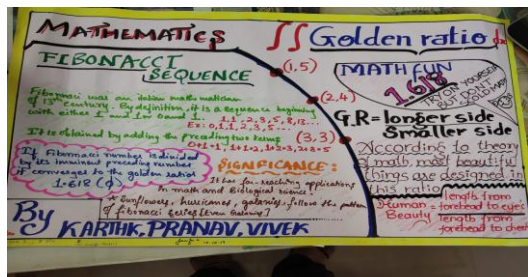 MATHEMATICS
FIBONACCI
SEQUENCE
Fibonacci was an Italian mathematician
of 13th century. By definition, it is a sequence beginning
with either 1 and 1 or 0 and 1.
1, 1, 2, 3, 5, 8, 13...
Ex: 0, 1, 1, 2, 3, 5...
It is obtained by adding the preceding two terms
0+1=1, 1+1=2, 1+2=3, 2+3=5
If Fibonacci number is divided
by its imminent preceding number
it converges to the golden ratio
1.618 (ϕ)
SIGNIFICANCE:
It has far-reaching applications
in math and Biological science!
* Sunflowers, hurricanes, galaxies, follow the pattern
of fibonacci series
By KARTHK, PRANAV, VIVEK
(1,5)
(2,4)
(3,3)
∫∫ Golden ratio dx
MATH FUN
1.618
TRY ON YOURSELF
BUT DON'T
G.R = longer side
Smaller side
According to theory
of math, most beautiful
things are designed in
this ratio
Human Beauty = length from
forehead to eyes
length from
forehead to chin